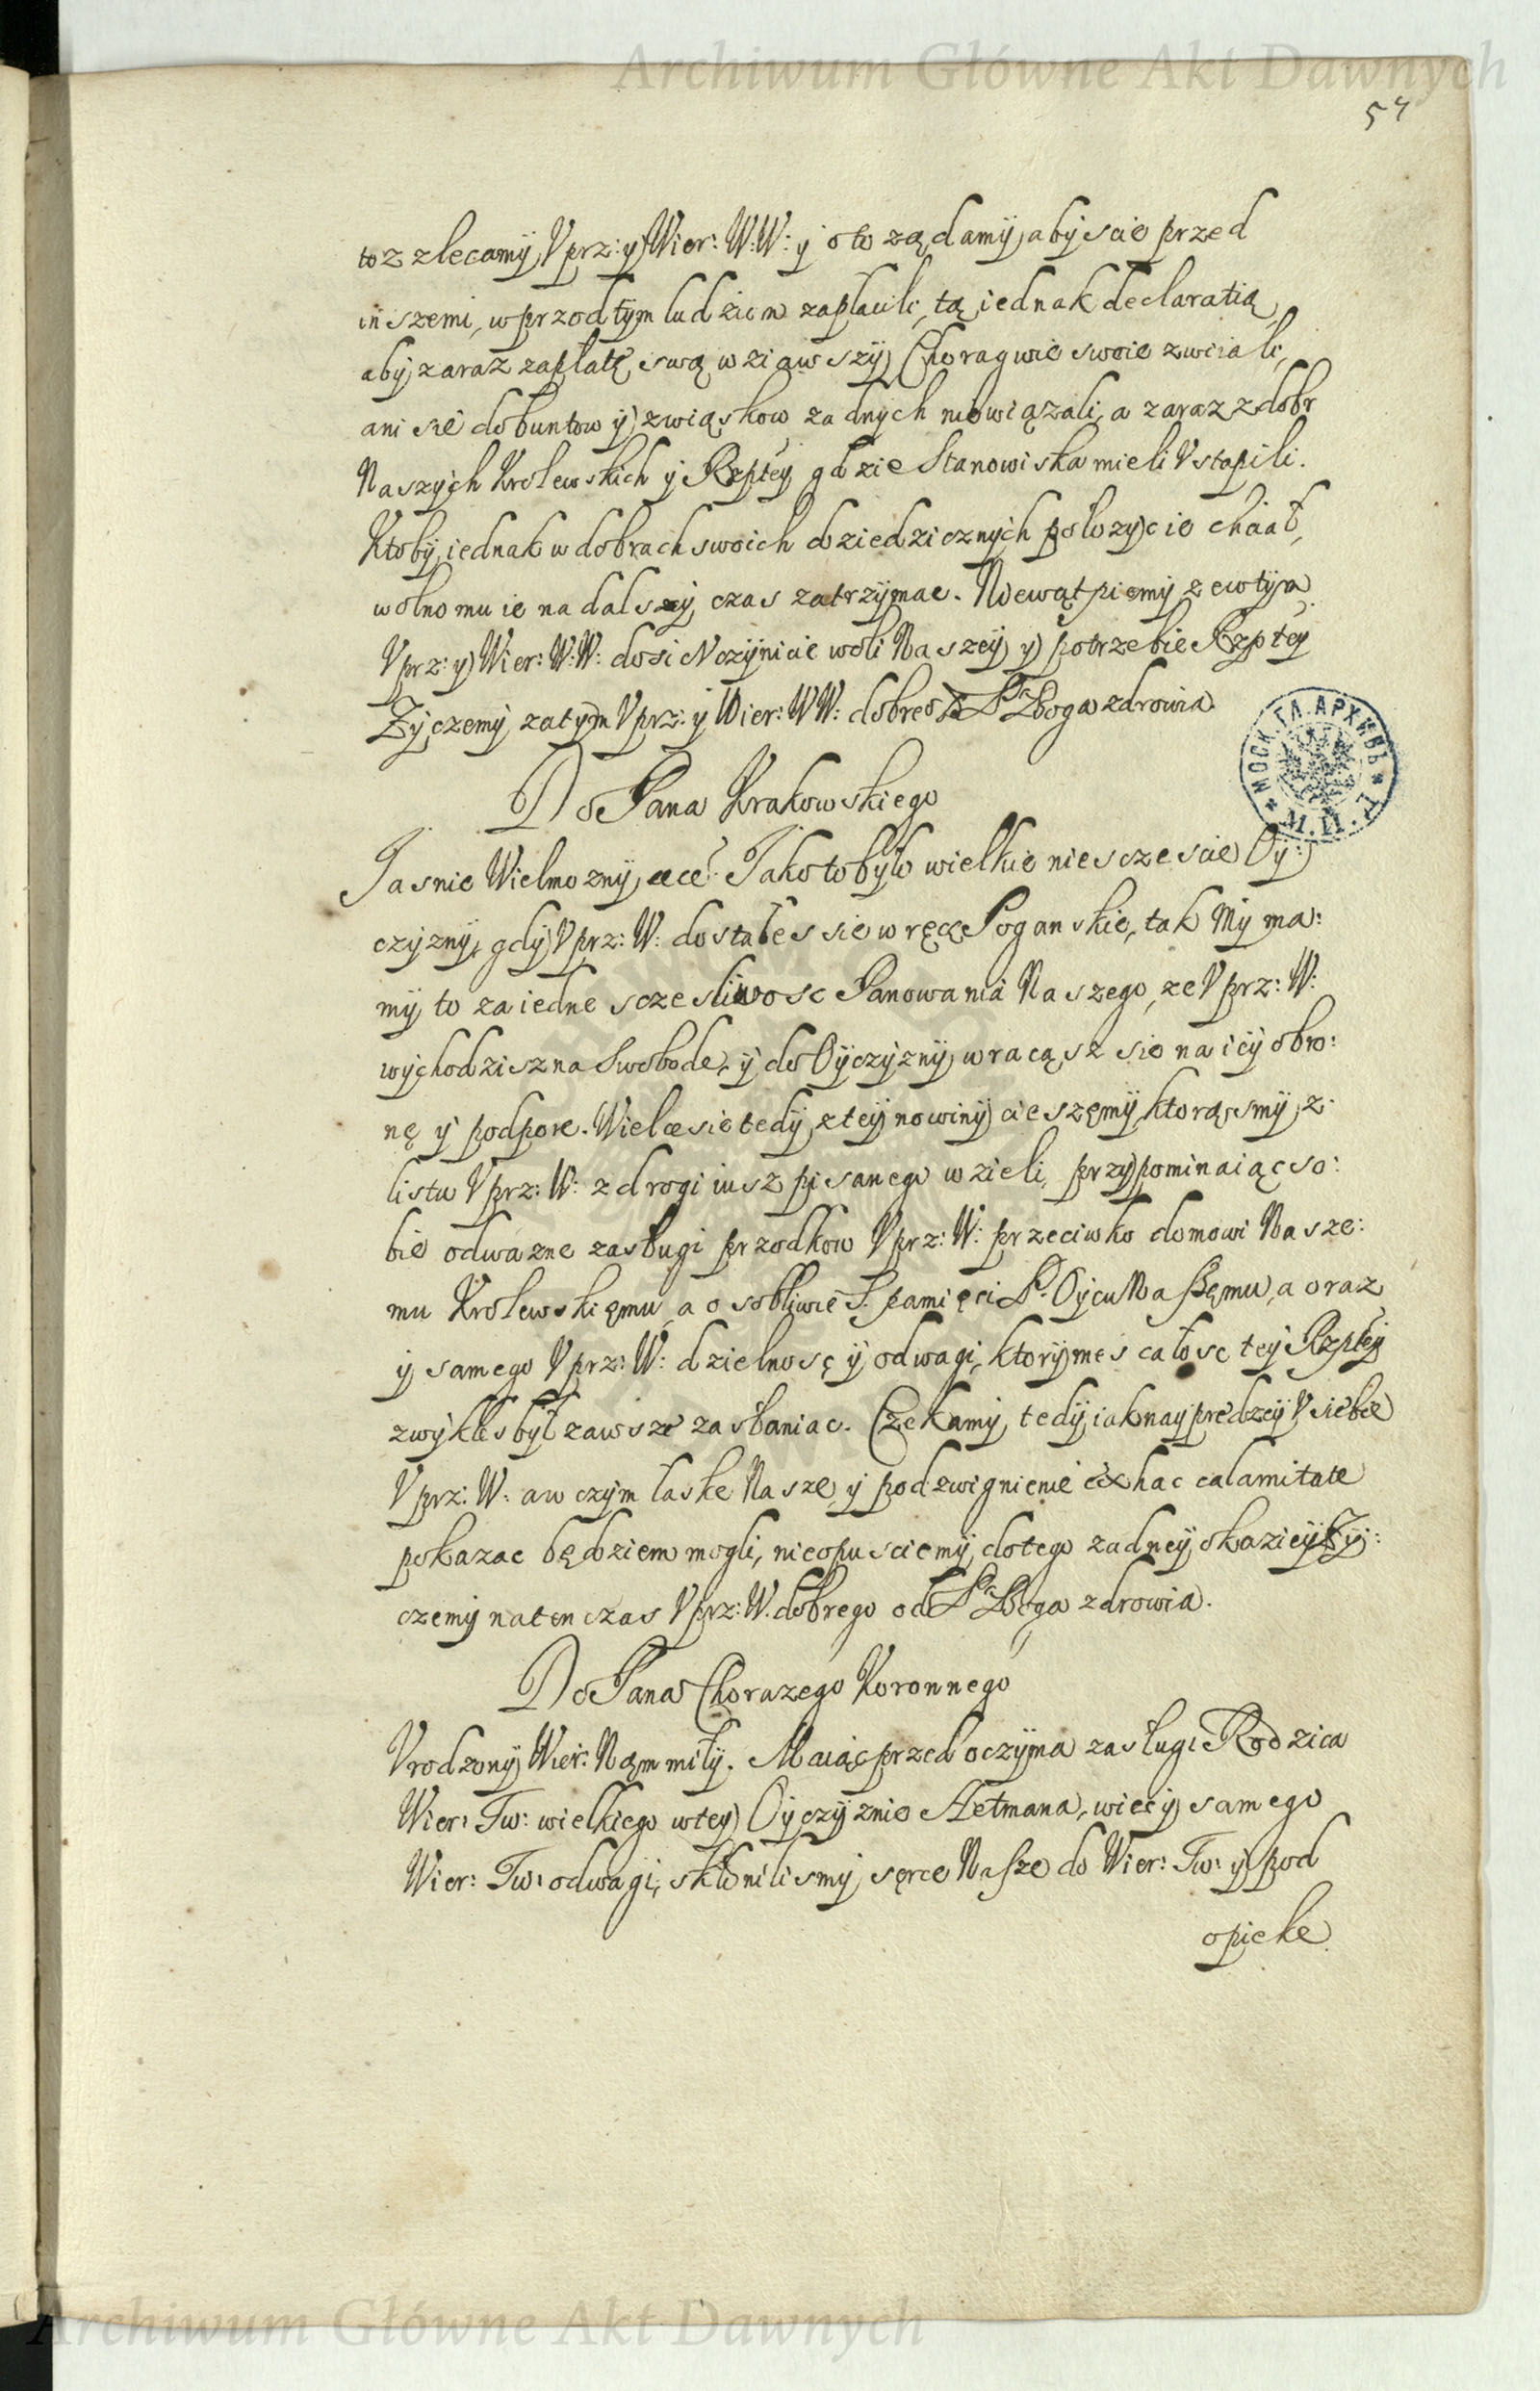 Archiwum Główne Akt Dawnych
57
toz zlecamy Vprz: y Wier: W:W: y o to ządamy, abyscie przed
inszemi, wprzod tym ludziom zapłacili, tą iednak declaratią,
aby zaraz zapłatę swą wziąwszy Chorągwie swoie zwiiali,
ani sie do buntow y związkow zadnych niewiązali, a zaraz z dobr
Naszych Krolewskich y Rzptey gdzie Stanowiska mieli Vstąpili.
Ktoby iednak w dobrach swoich dziedzicznych połozyc ie chciał,
wolno mu ie na dalszy czas zatrzymac. Niewątpiemy ze w tym
Vprz: y Wier: W:W: dosic Vczynicie woli Naszey y potrzebie Rzptey
Zyczemy zatym Vprz: y Wier: WW: dobreo od Pa Boga zdrowia.
Do Pana Krakowskiego
Jasnie Wielmozny etc. Jako to było wielkie niesczescie Oy:
czyzny, gdy Vprz: W: dostałes sie w ręce Poganskie, tak My ma:
my to za iedne sczesliwosc Panowania Naszego, ze Vprz: W:
wychodzisz na Swobode, y do Oyczyzny wracasz sie na iey obro:
nę y podporę. Wielce sie tedy z tey nowiny cieszemy, ktorąsmy z
listu Vprz: W: z drogi iusz pisanego wzieli, przypominaiąc so:
bie odwazne zasługi przodkow Vprz: W: przeciwko domowi Nasze:
mu Krolewskiemu, a osobliwie S. pamięci P. Oycu Naszemu, a oraz
y samego Vprz: W: dzielnosc y odwagi, ktorymes całosc tey Rzptey
zwykłes był zawsze zasłaniac. Czekamy tedy iaknayprędzey V siebie
Vprz: W: a w czym łaske Nasze y podzwignienie ex hac calamitate
pokazac będziem mogli, nieopusciemy do tego zadney okaziey. Zy:
czemy na ten czas Vprz: W. dobrego od Pa Boga zdrowia.
Do Pana Chorązego Koronnego
Vrodzony Wier: Nam miły. Maiąc przed oczyma zasługi Rodzica
Wier: Tw: wielkiego w tey Oyczyznie Hetmana, wiecy samego
Wier: Tw: odwagi, skłonilismy serce Nasze do Wier: Tw: y pod
opieke
МОСК. ГЛ. АРХИВЪ
Archiwum Główne Akt Dawnych